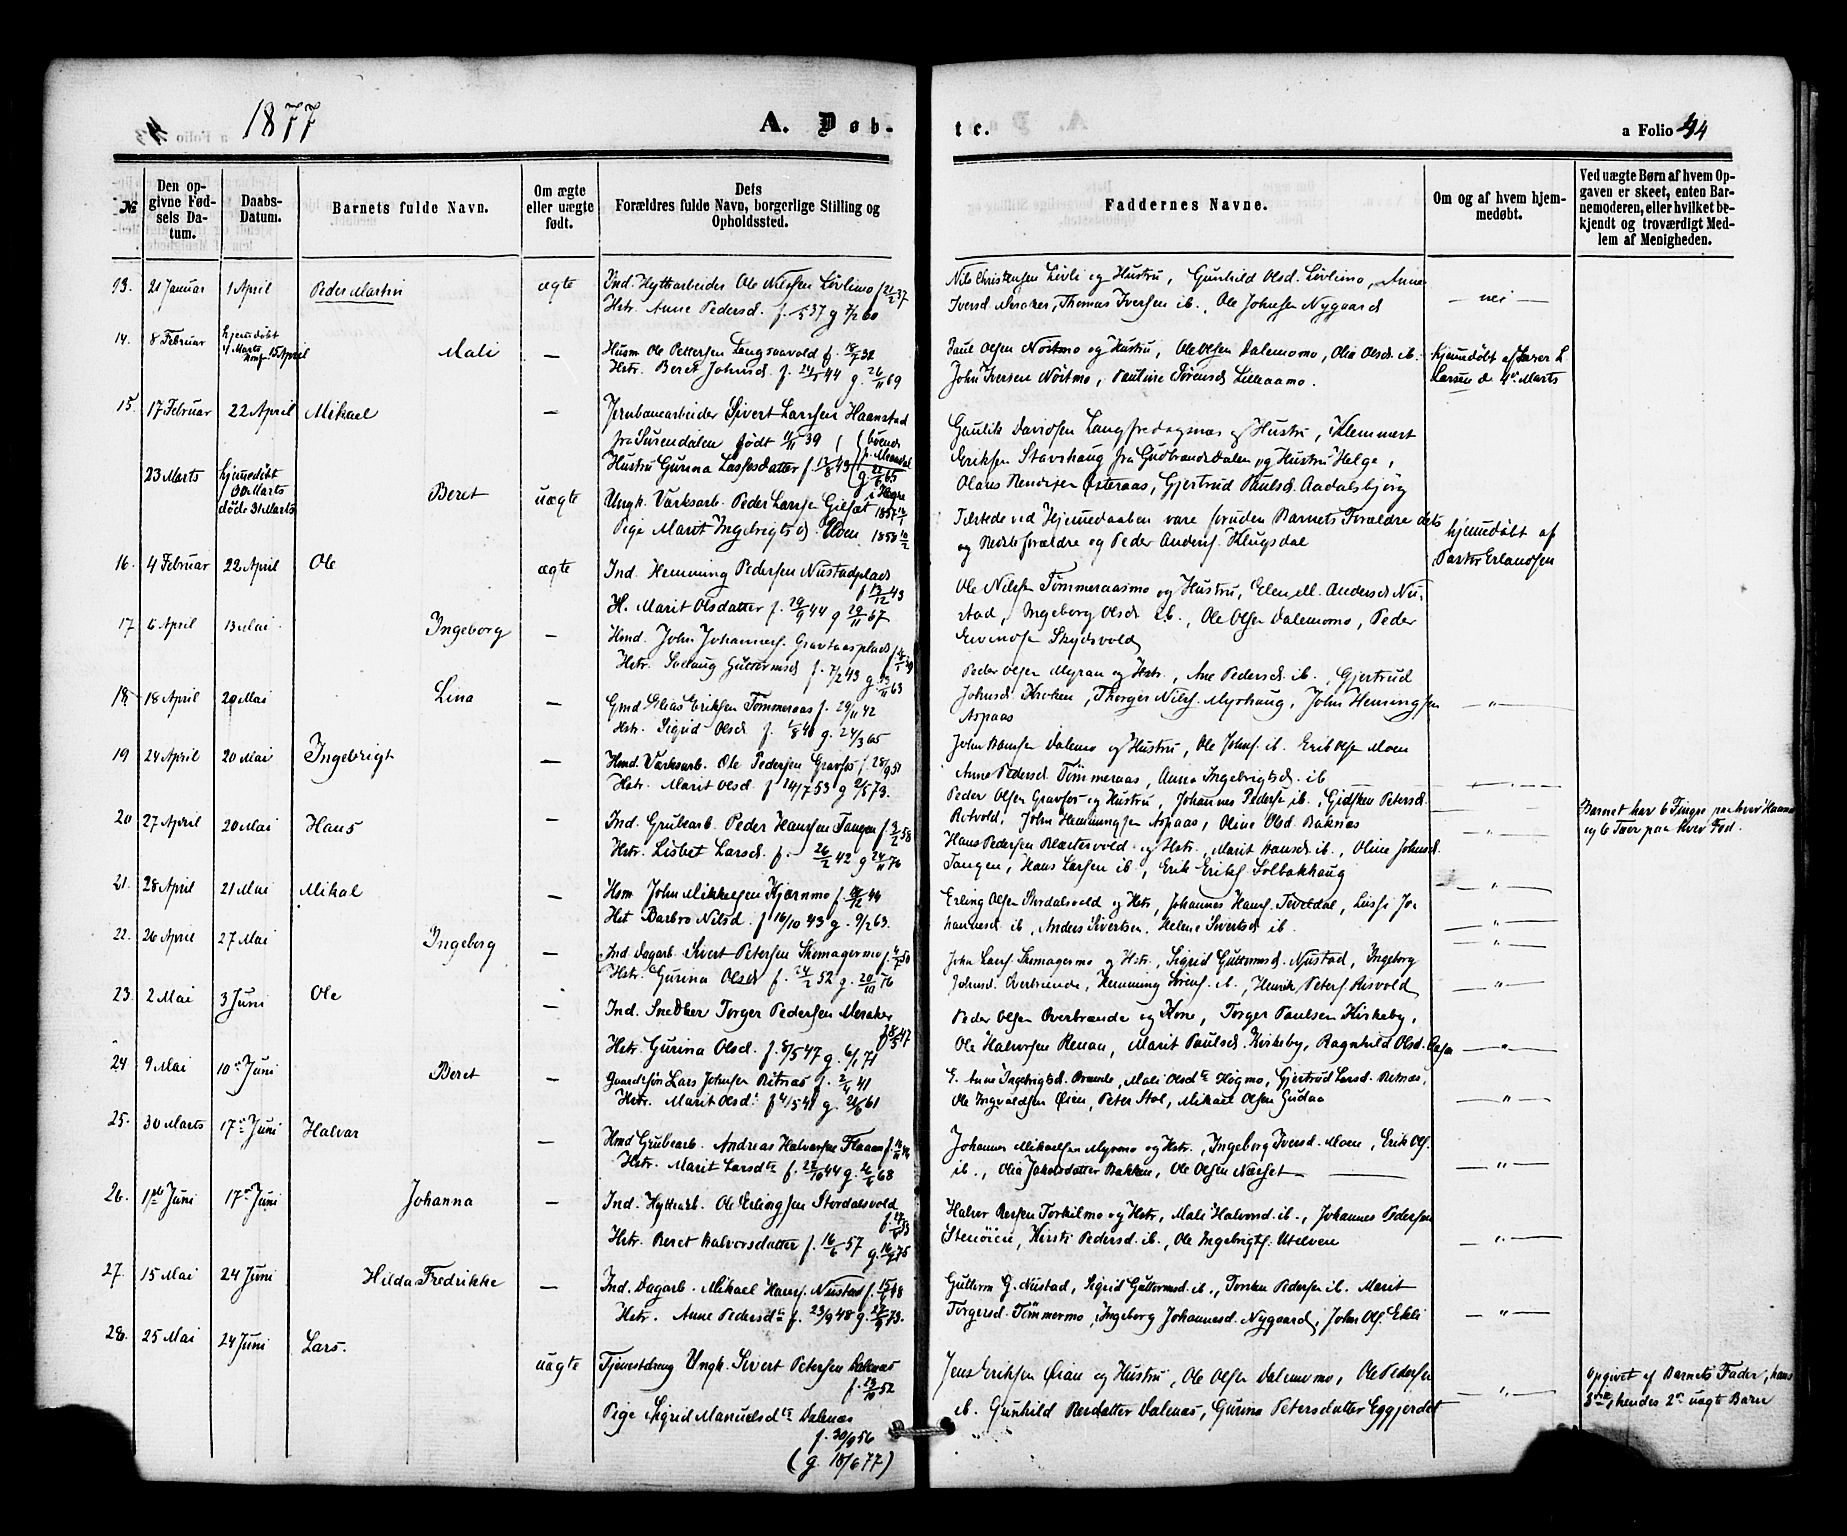 1877
A. Døb-
te.
a Folio 44
№
Den op-
givne Fød-
sels Da-
tum.
Daabs-
Datum.
Barnets fulde Navn.
Om ægte
eller uægte
født.
Dets
Forældres fulde Navn, borgerlige Stilling og
Opholdssted.
Faddernes Navne.
Om og af hvem hjem-
medøbt.
Ved uægte Børn af hvem Op-
gaven er skeet, enten Bar-
nemoderen, eller hvilket be-
kjendt og troværdigt Med-
lem af Menigheden.
13. 21 Januar 1 April Peder Martin ægte Ind. Hyttarbeider Ole Nilssen Lövlimo
Hstr. Anne Pedersd. f. 5 37 g 7/2 60
Nils Christensen Lövli og Hustru, Gunhild Olsd. Lövlimo, Anne
Iversd. Meraker, Thomas Iversen ib., Ole Johnsen Nygaard
nei
14. 8 Februar Hjemedöbt 4 Marts 15 April Mali — Husm Ole Pettersen Langsaavold
Hstr. Beret Johnsd. f. 44 g. 26/11 69
Paul Olsen Nöstmo og Hustru, Ole Olsen Dalemomo, Olia Olsd. ib.
John Iversen Nöstmo, Pauline Sörensd. Lilleaamo.
hjemedöbt af Lærer L
Larsen d. 4 Marts
15. 17 Februar 22 April Mikael — Jernbanearbeider Sivert Larssen Haanstad
fra Surendalen födt 11/11 39
Hustru Gurina Lassesdatter
Gaulik Davidsen Langfredagsnæs og Hustru, Klemmert
Eriksen Stavshaug fra Gudbrandsdalen, og Hustru Helge,
Olaus Östeaas, Gjertrud Paulsd. Aadalsbjörg
23 Marts hjemedöbt
30 Marts
döde 31 Marts
Beret uægte Ungk. Værksarb. Peder Larssen Gilset 1857
Pige Marit Ingebrigtsd. 1858
Tilstede ved Hjemedaaben vare foruden Barnets Forældre dets
og Peder Anders. Klugsdal
hjemedöbt af
Pastor Erlandsen
16. 4 Februar 22 April Ole ægte Ind. Hemming Pedersen Nustadplads
H. Marit Olsdatter f. 29/9 44 g 29/11 67
Ole Nilsen Tömmeraasmo og Hustru, Andersd. Nu-
stad, Ingeborg Olsd. ib., Ole Olsen Dalemomo, Peder
Skydsvold
17 6 April 13 Mai. Ingeborg — Hmd. John Johannes. Gravaasplads
Hstr. Solaug Guttormsd. f. 7/2 43
Peder Olsen Myran og Hstr., Ane Pedersd. ib., Gjertrud
Johnsd. Kroken, Thorger Nils. Myrhaug, John Hemingsen
Aspaas
18 18 April 20 Mai Lina — Gmd. Elias Eriksen Tömmeraas f. 29/11 42
Hstr. Sigrid Olsd. f. 40 g. 24/3 65
John Dalemo og Hustru, Ole Johns. ib. Erik Olsen Moen
Anne Pedersd. Tömmeraas, Anna Ingebrigtsd. ib
19 24 April 20 Mai Ingebrigt — Hmd. Værksarb. Ole Pedersen Gravfos
Hstr. Marit Olsd. f 14/7 53 g 2/5 73.
Peder Olsen Gravfos og Hustru, Johannes Pederse ib., Gidsken Petersd.
Rotvold, John Hemmingsen Aspaas, Oline Olsd. Baknæs
20 27 April 20 Mai Hans — Ind. Grubearb. Peder Hanssen Tangen
Hstr. Lisbet Larsd. f. 26/2 42 g 24/11 76
Hans Pedersen og Hstr., Marit Hansd. ib., Oline Johnsd.
Tangen, Hans Larsen ib., Erik Eriks. Solbakhaug
Barnet har 6 Fingre paa hver Haand
og 6 Tæer paa hver Fod.
21. 28 April 21 Mai Mikal — Hsm John Mikkelsen Kjærnmo
Hst Barbro Nilsd. f 16/10 43 g. 9/2 63.
Erling Olsen Stordalsvold og Hstr, Johannes Hans. Teveldal, Jo-
hannesd. ib, Anders Sivertsen, Helene Sivertsd. ib.
22. 26 April 27 Mai Ingeborg — Ind. Dagarb. Sivert Petersen Skomagermo
Hstr. Gurina Olsd. f. 52 g. 20/11 76
John Lars. Skomagermo og Hstr., Sigrid Guttormsd. Nustad, Ingeborg
Johnsd. Overbrende, Hemming Sörens. ib., Henrik Peters. Risvold
23. 2 Mai 3 Juni Ole — Ind. Snedker Torger Pedersen Meraker
Hstr. Gurina Olsd. f. 8/5 47 g. 6/1 71
Peder Olsen Overbrænde og Kone, Torger Paulsen Kirkeby,
Ole Halvorsen Renan, Marit Paulsd. Kirkeby, Ragnhild Olsd.
24 9 Mai 10 Juni Beret — Gaardsön Lars Johnsen Ritnæs
Hstr. Marit Olsd. f 4/5 41 g. 21/6 61
E. Anne Ingebrigtsd. Brænde, Mali Olsd. Högmo, Gjertrud Larsd. Ritnæs,
Ole Ingvaldsen Öien, Peter Stol, Mikael Olsen Gudaa
25. 30 Marts 17 Juni Halvar — Hmd Grubearb. Andreas Halvorsen Flaam
Hstr. Marit Larsd. f. 44 g. 68
Johannes Mikaelsen Myrmo og Hstr., Ingeborg Iversd. Moen, Erik Ols.
ib., Olia Jakobsdatter Bakken, Ole Olsen Nærset
26. 1ste Juni 17 Juni Johanna — Ind. Hyttarb. Ole Erlingsen Stordalsvold
Hstr. Beret Halvorsdatter f. 16/6 57
Halvor Torkilmo og Hstr, Mali Halvorsd. ib., Johannes Pedersen
Stenöien, Kirsti Pedersd. ib., Ole Ingebrigts. Utelven
27. 15 Mai 24 Juni Hilda Fredrikke — Ind. Dagarb. Mikael Hans. Nustad
Hstr. Anne Pedersd. f. 23/9 48
Guttorm G. Nustad, Sigrid Guttormsd. ib., Torsten Pedersen ib. Marit
Torgersd. Tömmermo, Ingeborg Johannesd. Nygaard, John Ols. Ekli
28. 25 Mai 24 Juni Lars. uægte Tjenestdreng Ungk. Sivert Petersen Dalnæs
Pige Sigrid Manuelsd. Dalnæs
f. 30/9 56
(g. 18/6 77)
Jens Eriksen Öian og Hustru, Ole Olsen Dalemomo, Ole Pedersen
ib. Gunhild Dalnæs, Gurine Petersdatter Eggjerdet
Opgivet af Barnets Fader, hans
hendes 2 uægte Barn